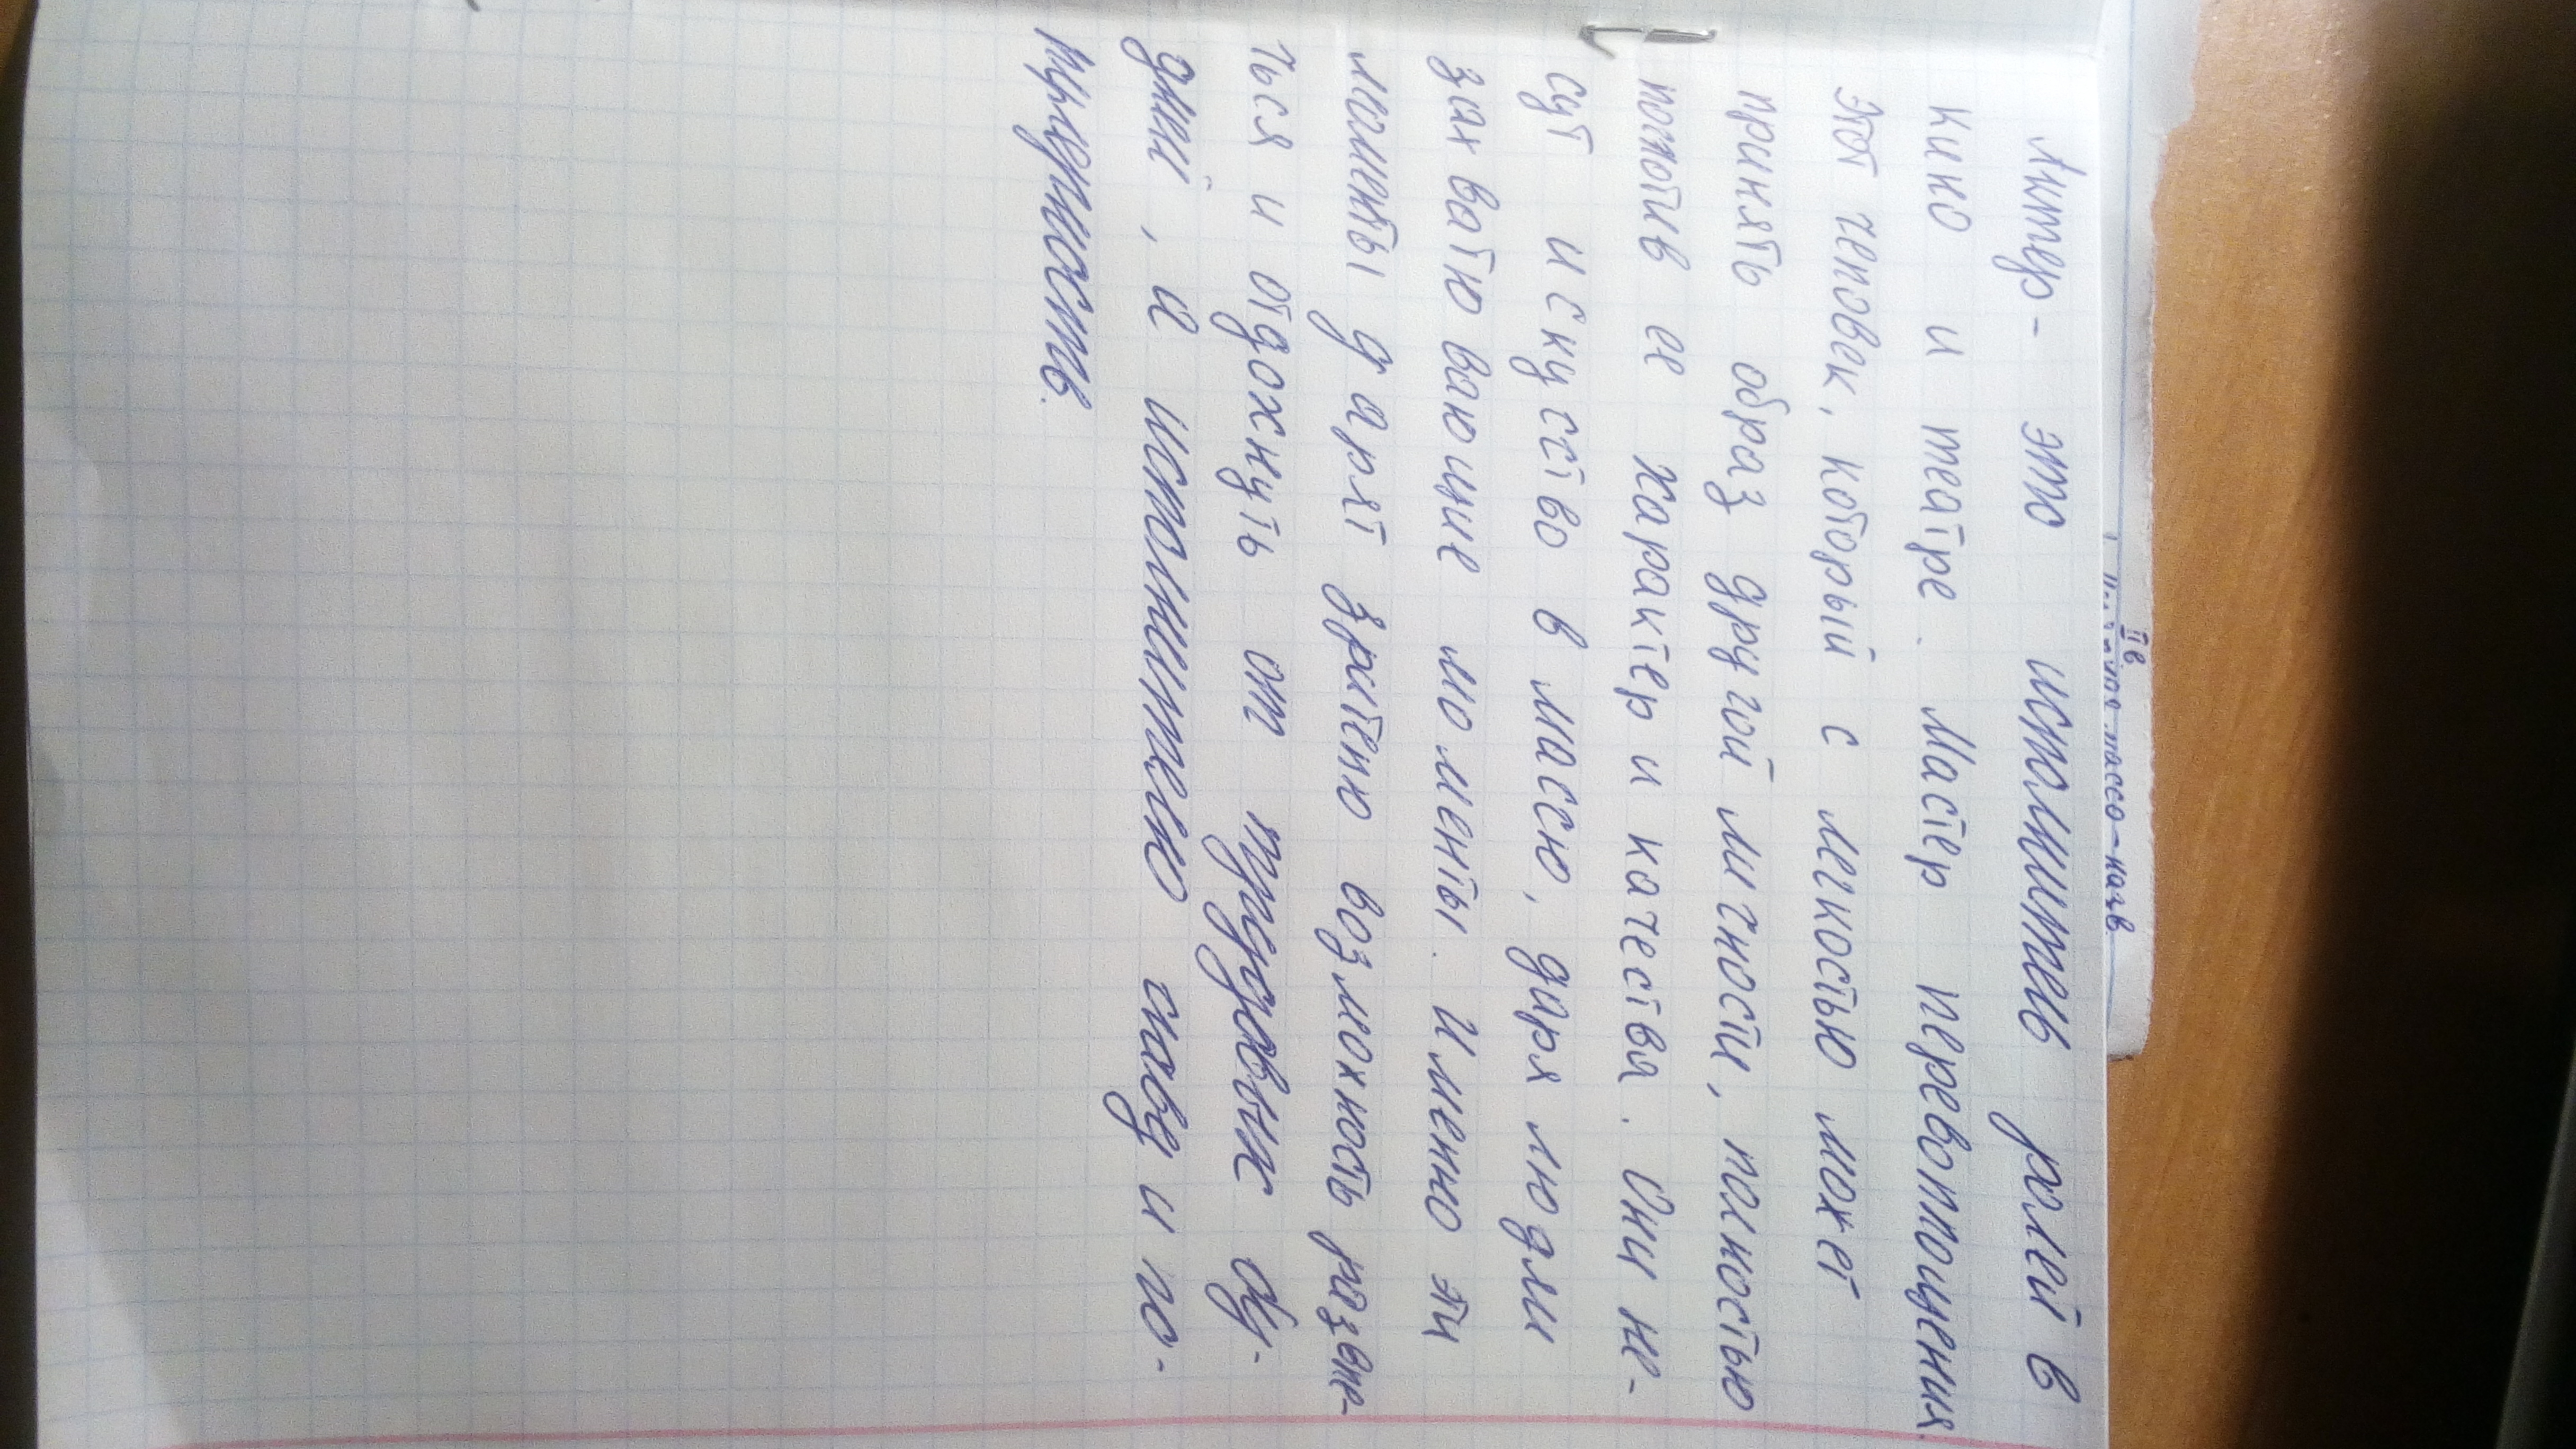 Актер - это исполнитель ролей в
кино и театре. Мастер перевоплощения.
Этот человек, который с легкостью может
принять образ другой личности, полностью
поняв ее характер и качества. Они не-
сут искусство в массю, даря людям
захватювающие моменты. Именно эти
моменты дарят зрителю возможность развле-
ться и отдохнуть от трудовых бу-
дней, а исполнителю славу и по-
пулярность.
IIв